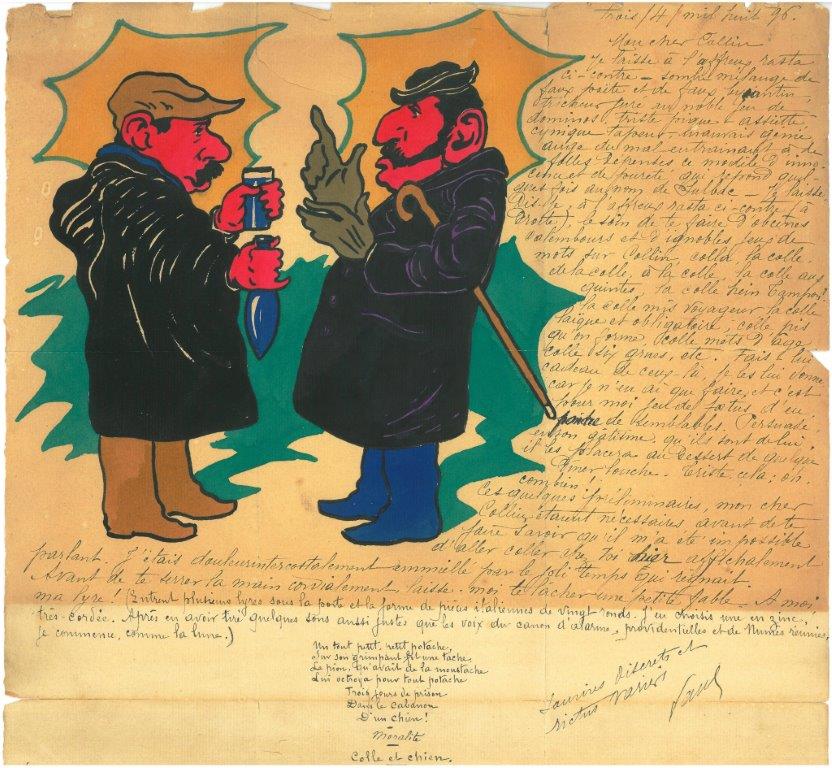 Trois / 4 / mil huit 96.
Mon cher Collin
Je laisse à l'affreux rasta
ci-contre — sombre mélange de
faux poète et de faux
tricheur juré au noble jeu de
dominos, triste pique-assiette
cynique tapeur, mauvais génie
ange du mal entrainant à de
folles dépenses ce modèle d'inno
cence et de pureté, qui répond quel
ques fois au nom de — Je laisse
dis-je, à l'affreux rasta ci-contre, à
le soin de te faire d'obscènes
calembours et d'ignobles jeux de
mots sur Collin, colla, la colle.
de la colle, à la colle, la colle aux
quintes, la colle hein
la colle mis voyageur la colle
laïque et obligatoire, colle pis
qu'on forme, colle mots d'âge
colle etc. Fais-lui
cadeau de ceux-là, je les lui donne
car je n'en ai que faire, et c'est
pour moi jeu de fœtus d'en
pondre de semblables. Persuadé
en son gatisme, qu'ils sont de lui
il les placera au dessert de quelque
louche. Triste cela, oh.
combien!
Ces quelques préliminaires, mon cher
Collin, étaient nécessaires avant de te
faire savoir qu'il m'a été impossible
d'aller coller chez toi hier affichalement
parlant. J'étais douleurintercostalement ammiellé par le joli temps qui régnait.
Avant de te serrer la main cordialement laisse-moi te lâcher une petite fable — A moi
ma lyre! (Entrent plusieurs lyres sous la porte et la forme de pièces italiennes de vingt ronds. J'en choisis une en zinc,
très-cordée. Après en avoir tiré quelques sons aussi justes que les voix du canon d'alarme, providentielles et de Numès réunies,
je commence, comme la lune.)
Un tout petit, petit potache,
Sur son grimpant fit une tache,
Le pion, qu'avait de la moustache
Lui octroya pour tout potache
Trois jours de prison
Dans le cabanon
D'un chien!
Moralité
Colle et chien.
Sourires discrets et
rictus variés